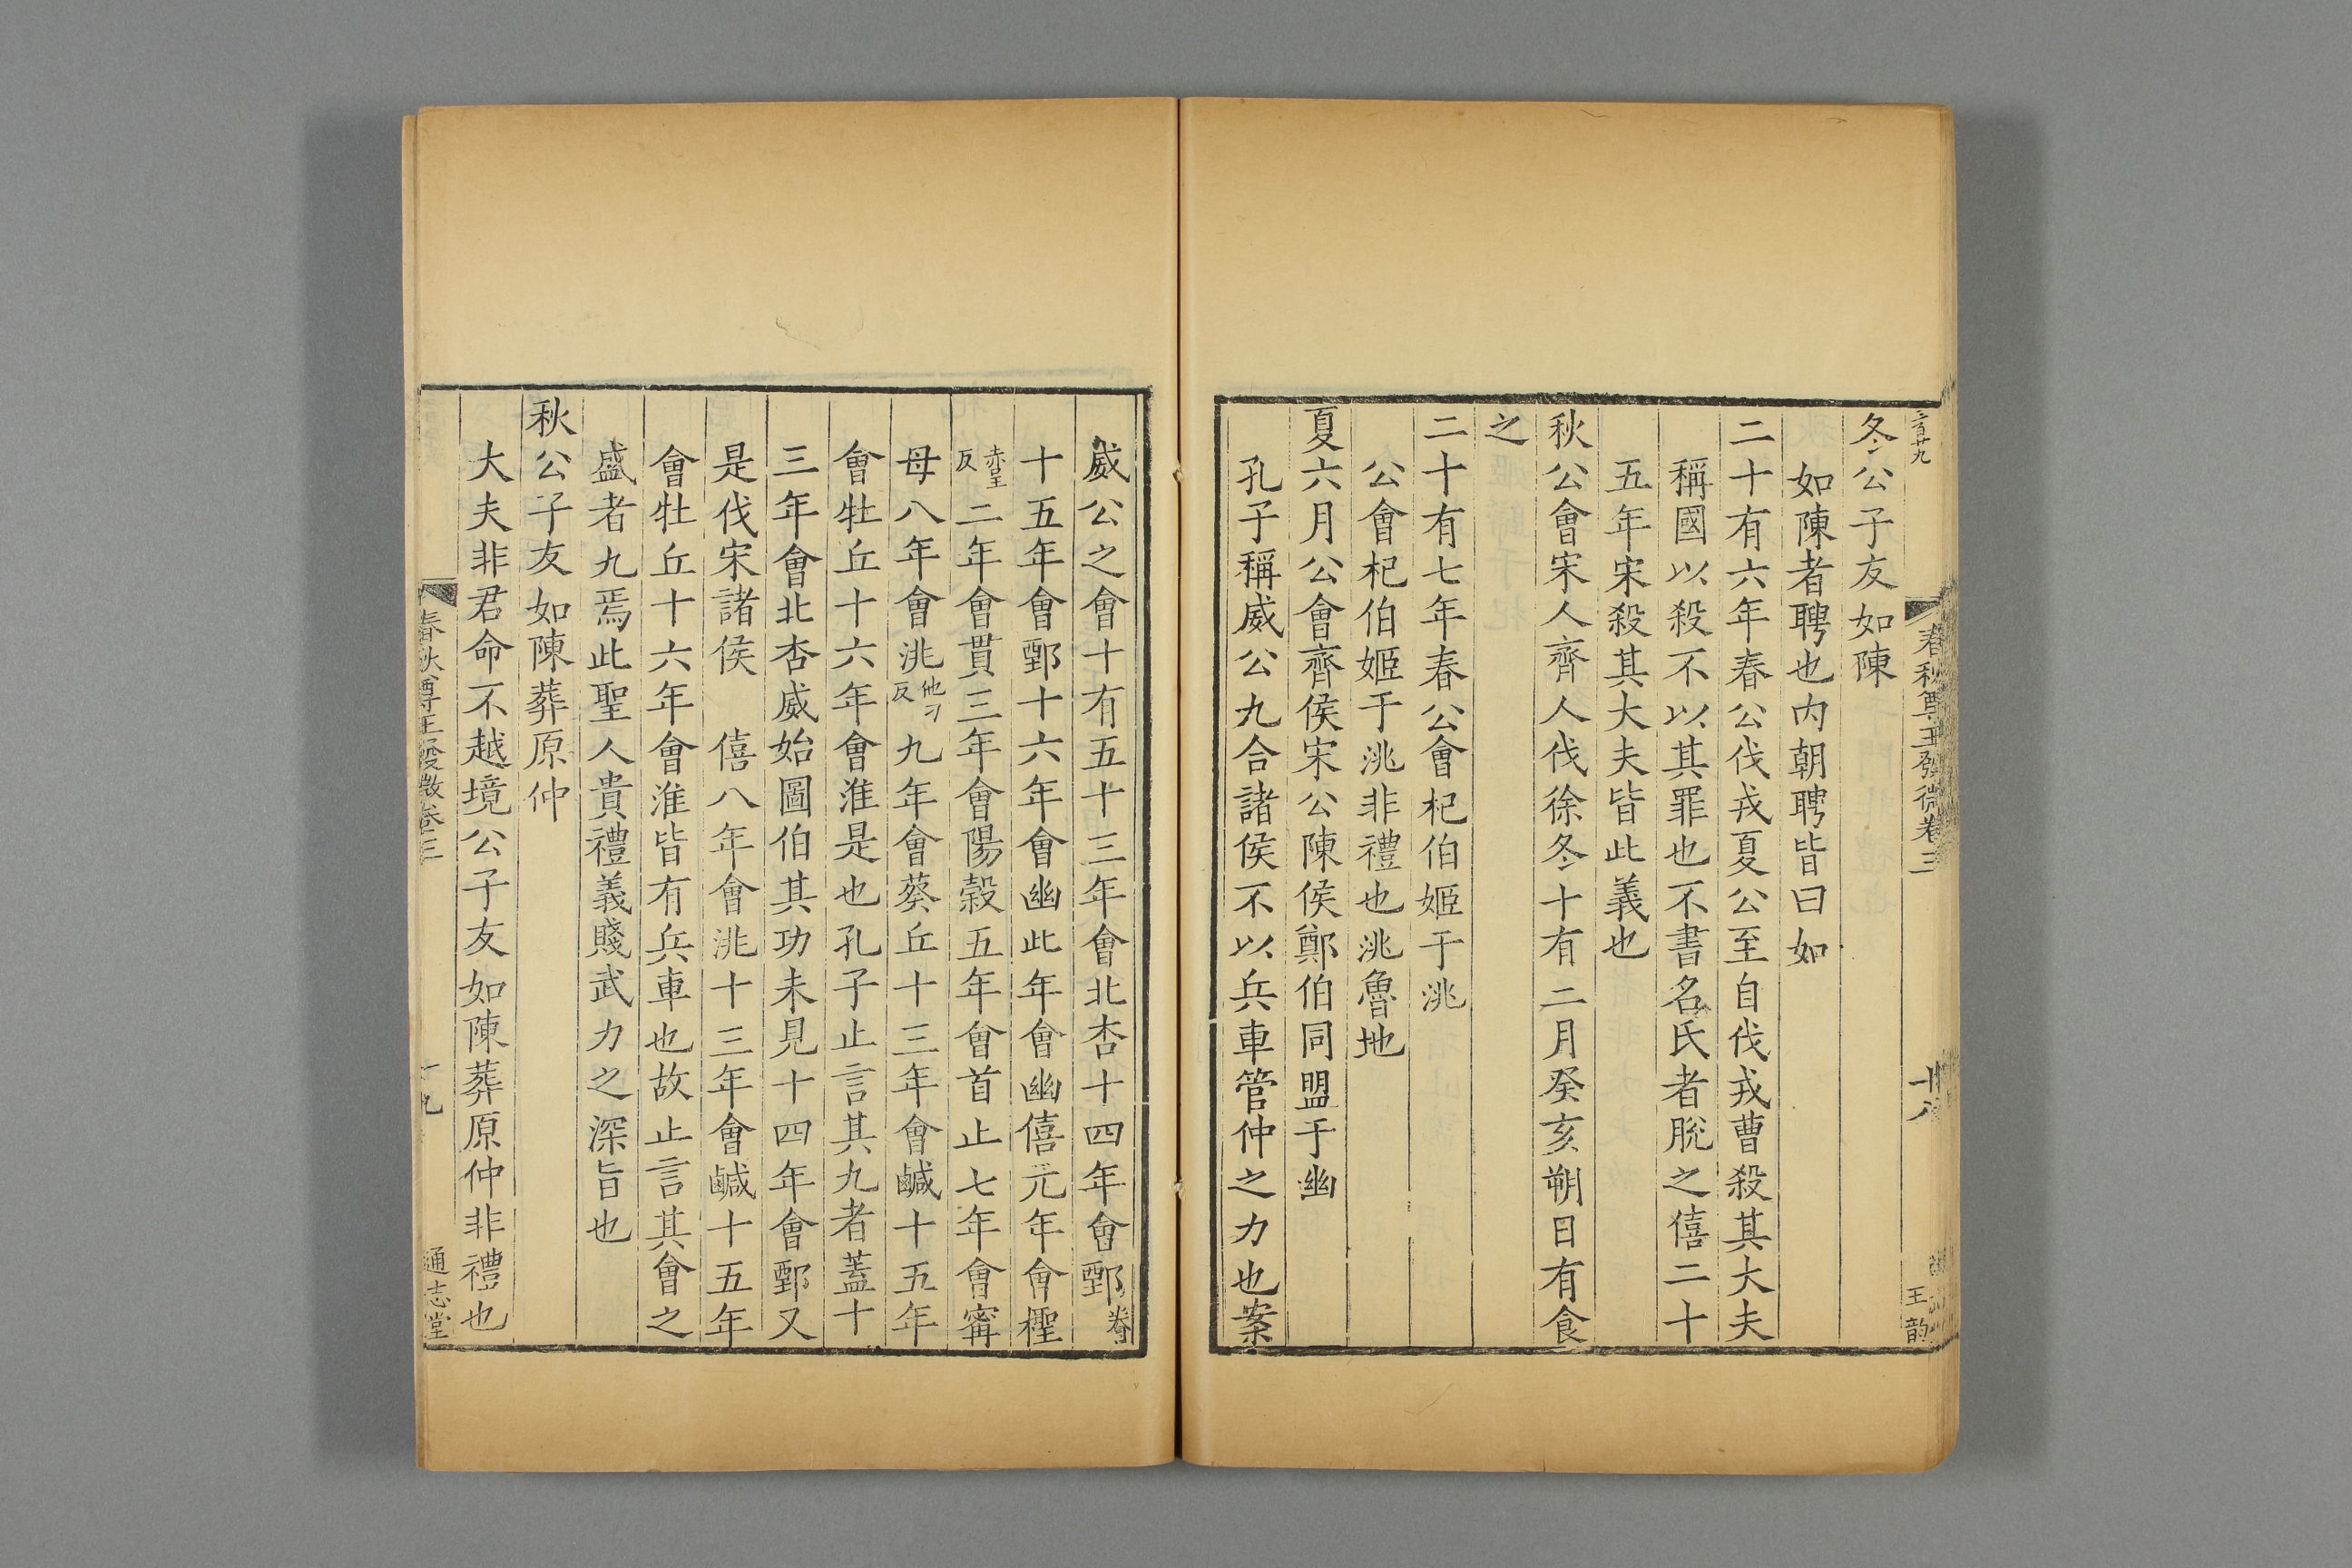 冬公子友如陳
如陳者聘也内朝聘皆曰如
二十有六年春公伐戎夏公至自伐戎曹殺其大夫
稱國以殺不以其罪也不書名氏者脫之僖二十
五年宋殺其大夫皆此義也
秋公會宋人齊人伐徐冬十有二月癸亥朔日有食
之
二十有七年春公會杞伯姬于洮
公會杞伯姬于洮非禮也洮魯地
夏六月公會齊侯宋公陳侯鄭伯同盟于幽
孔子稱威公九合諸侯不以兵車管仲之力也案
春秋尊王發微卷三
十八
王
威公之會十有五十三年會北杏十四年會鄄
十五年會鄄十六年會幽此年會幽僖元年會檉
反二年會貫三年會陽穀五年會首止七年會甯
母八年會洮他刁反九年會葵丘十三年會鹹十五年
會牡丘十六年會淮是也孔子止言其九者蓋十
三年會北杏威始圖伯其功未見十四年會鄄又
是伐宋諸侯 僖八年會洮十三年會鹹十五年
會牡丘十六年會淮皆有兵車也故止言其會之
盛者九焉此聖人貴禮義賤武力之深旨也
秋公子友如陳葬原仲
大夫非君命不越境公子友如陳葬原仲非禮也
春秋尊王發微卷三
十九
通志堂